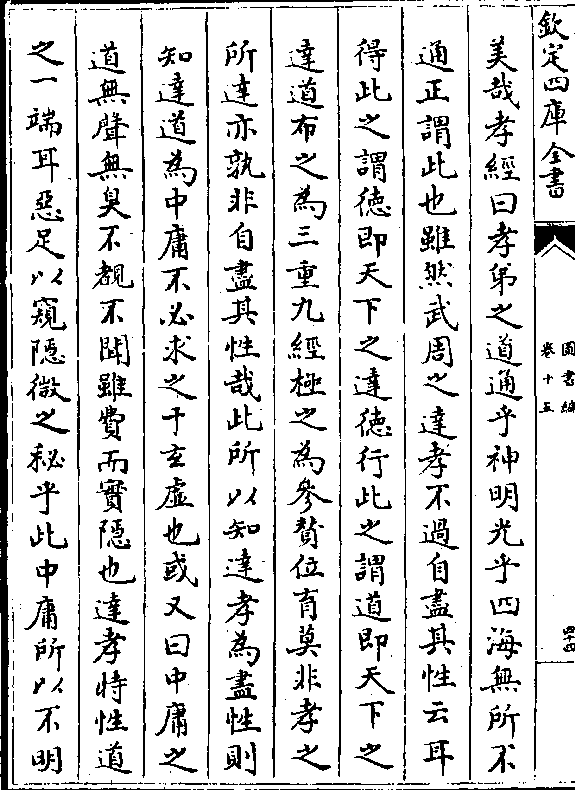 欽定四庫全書
圖書編
卷十五
四十四
美哉孝經曰孝弟之道通乎神明光乎四海無所不
通正謂此也雖然武周之達孝不過自盡其性云耳
得此之謂德即天下之達德行此之謂道即天下之
達道布之為三重九經極之為參賛位育莫非孝之
所達亦孰非自盡其性哉此所以知達孝為盡性則
知達道為中庸不必求之于玄虛也或又曰中庸之
道無聲無臭不覩不聞雖費而實隱也達孝特性道
之一端耳惡足以窺隱微之秘乎此中庸所以不明